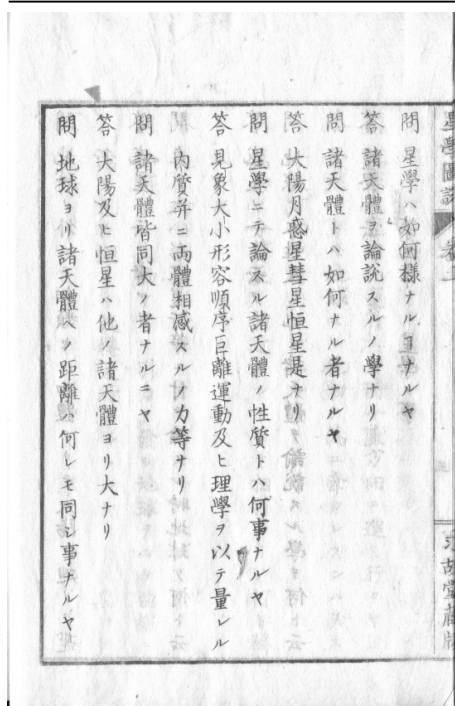 星學圖説 卷上
問 星學ハ如何樣ナルヿナルヤ
答 諸天體ヲ論説スルノ學ナリ
問 諸天體トハ如何ナル者ナルヤ
答 大陽月惑星彗星恒星是ナリ
問 星學ニテ論スル諸天體ノ性質トハ何事ナルヤ
答 見象大小形容順序巨離運動及ヒ理學ヲ以テ量レル
內質并ニ両體相感スルノ力等ナリ
問 諸天體皆同大ノ者ナルニヤ
答 大陽及ヒ恒星ハ他ノ諸天體ヨリ大ナリ
問 地球ヨリ諸天體ヘノ距離ハ何レモ同シ事ナルヤ